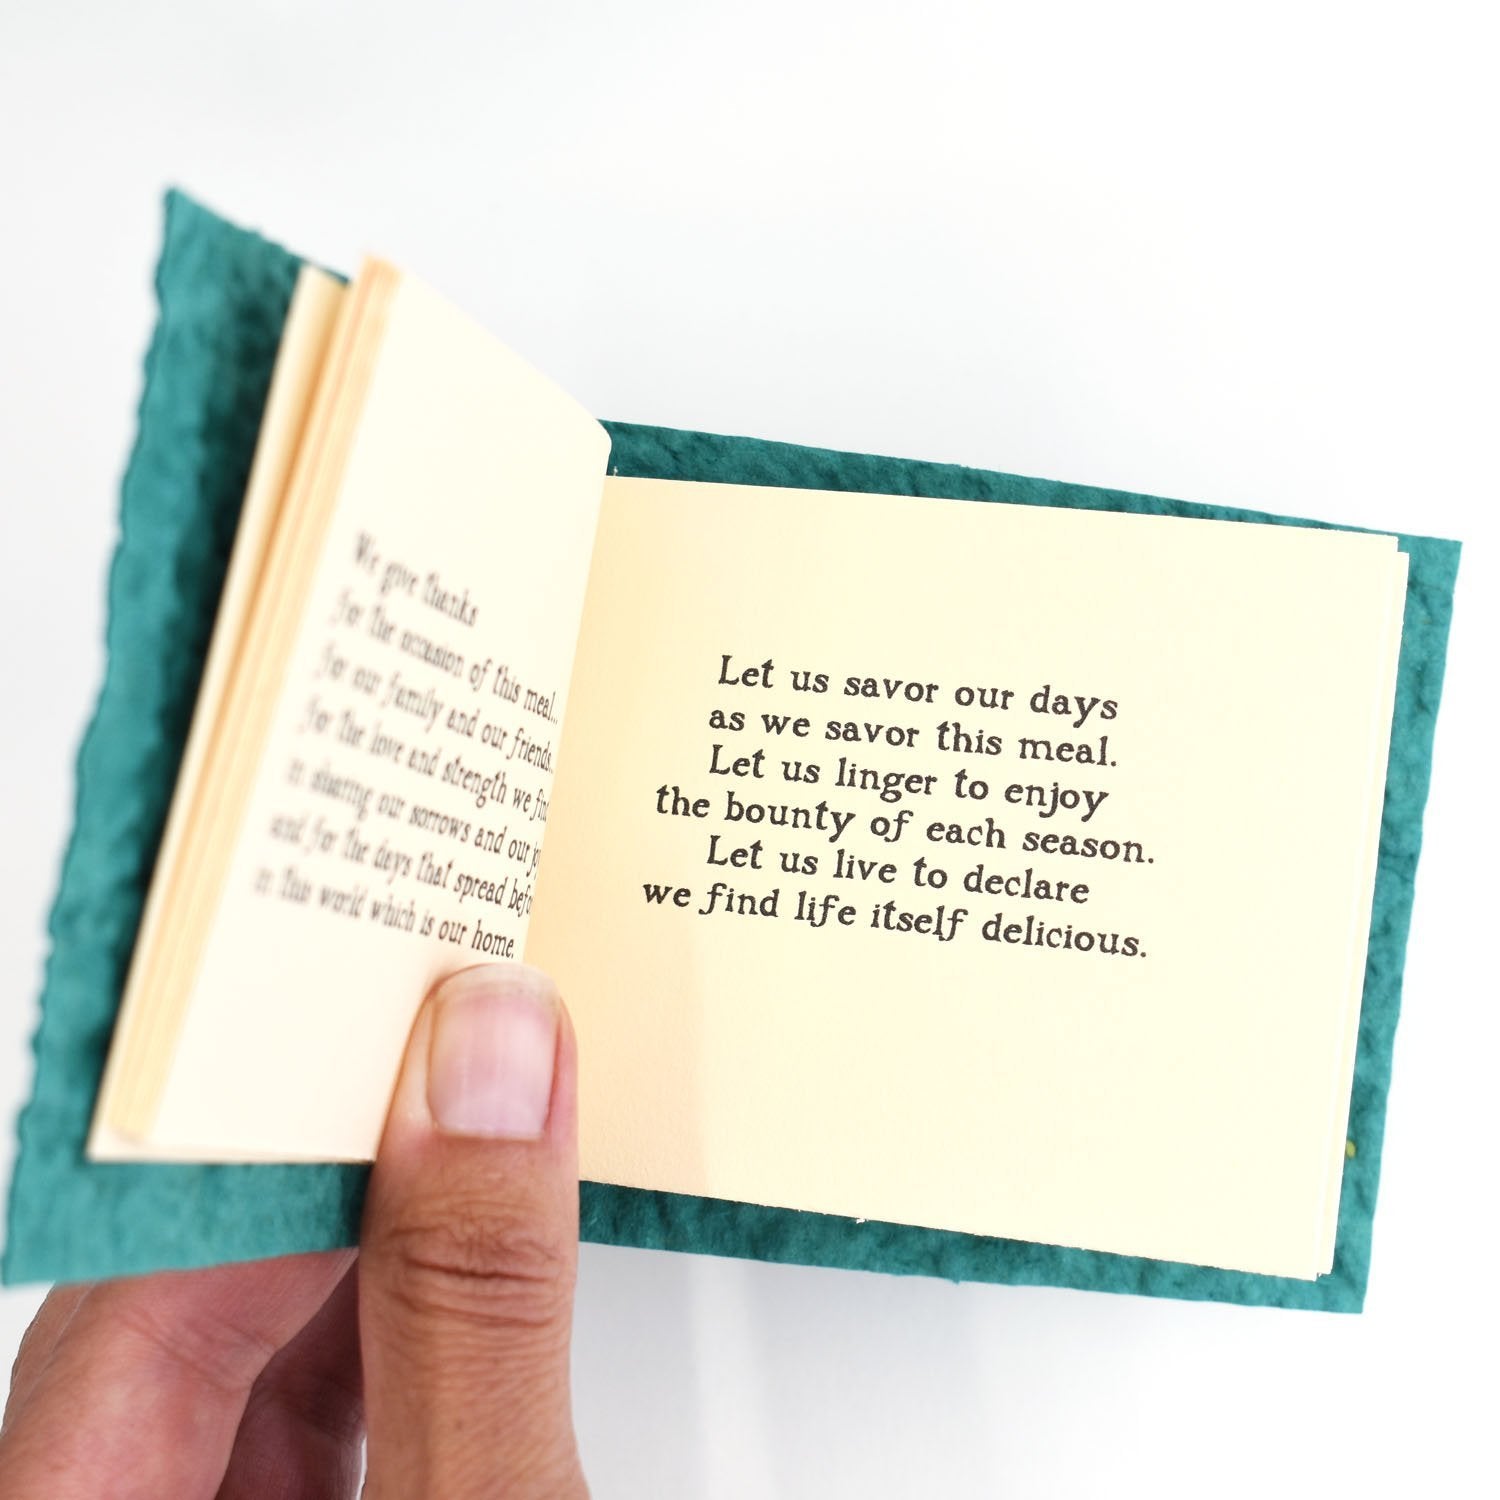 We give thanks
for the occasion of this meal...
for our family and our friends...
for the love and strength we find
in sharing our sorrows and our
and for the days that spread
in this world which is our home.
Let us savor our days
as we savor this meal.
Let us linger to enjoy
the bounty of each season.
Let us live to declare
we find life itself delicious.